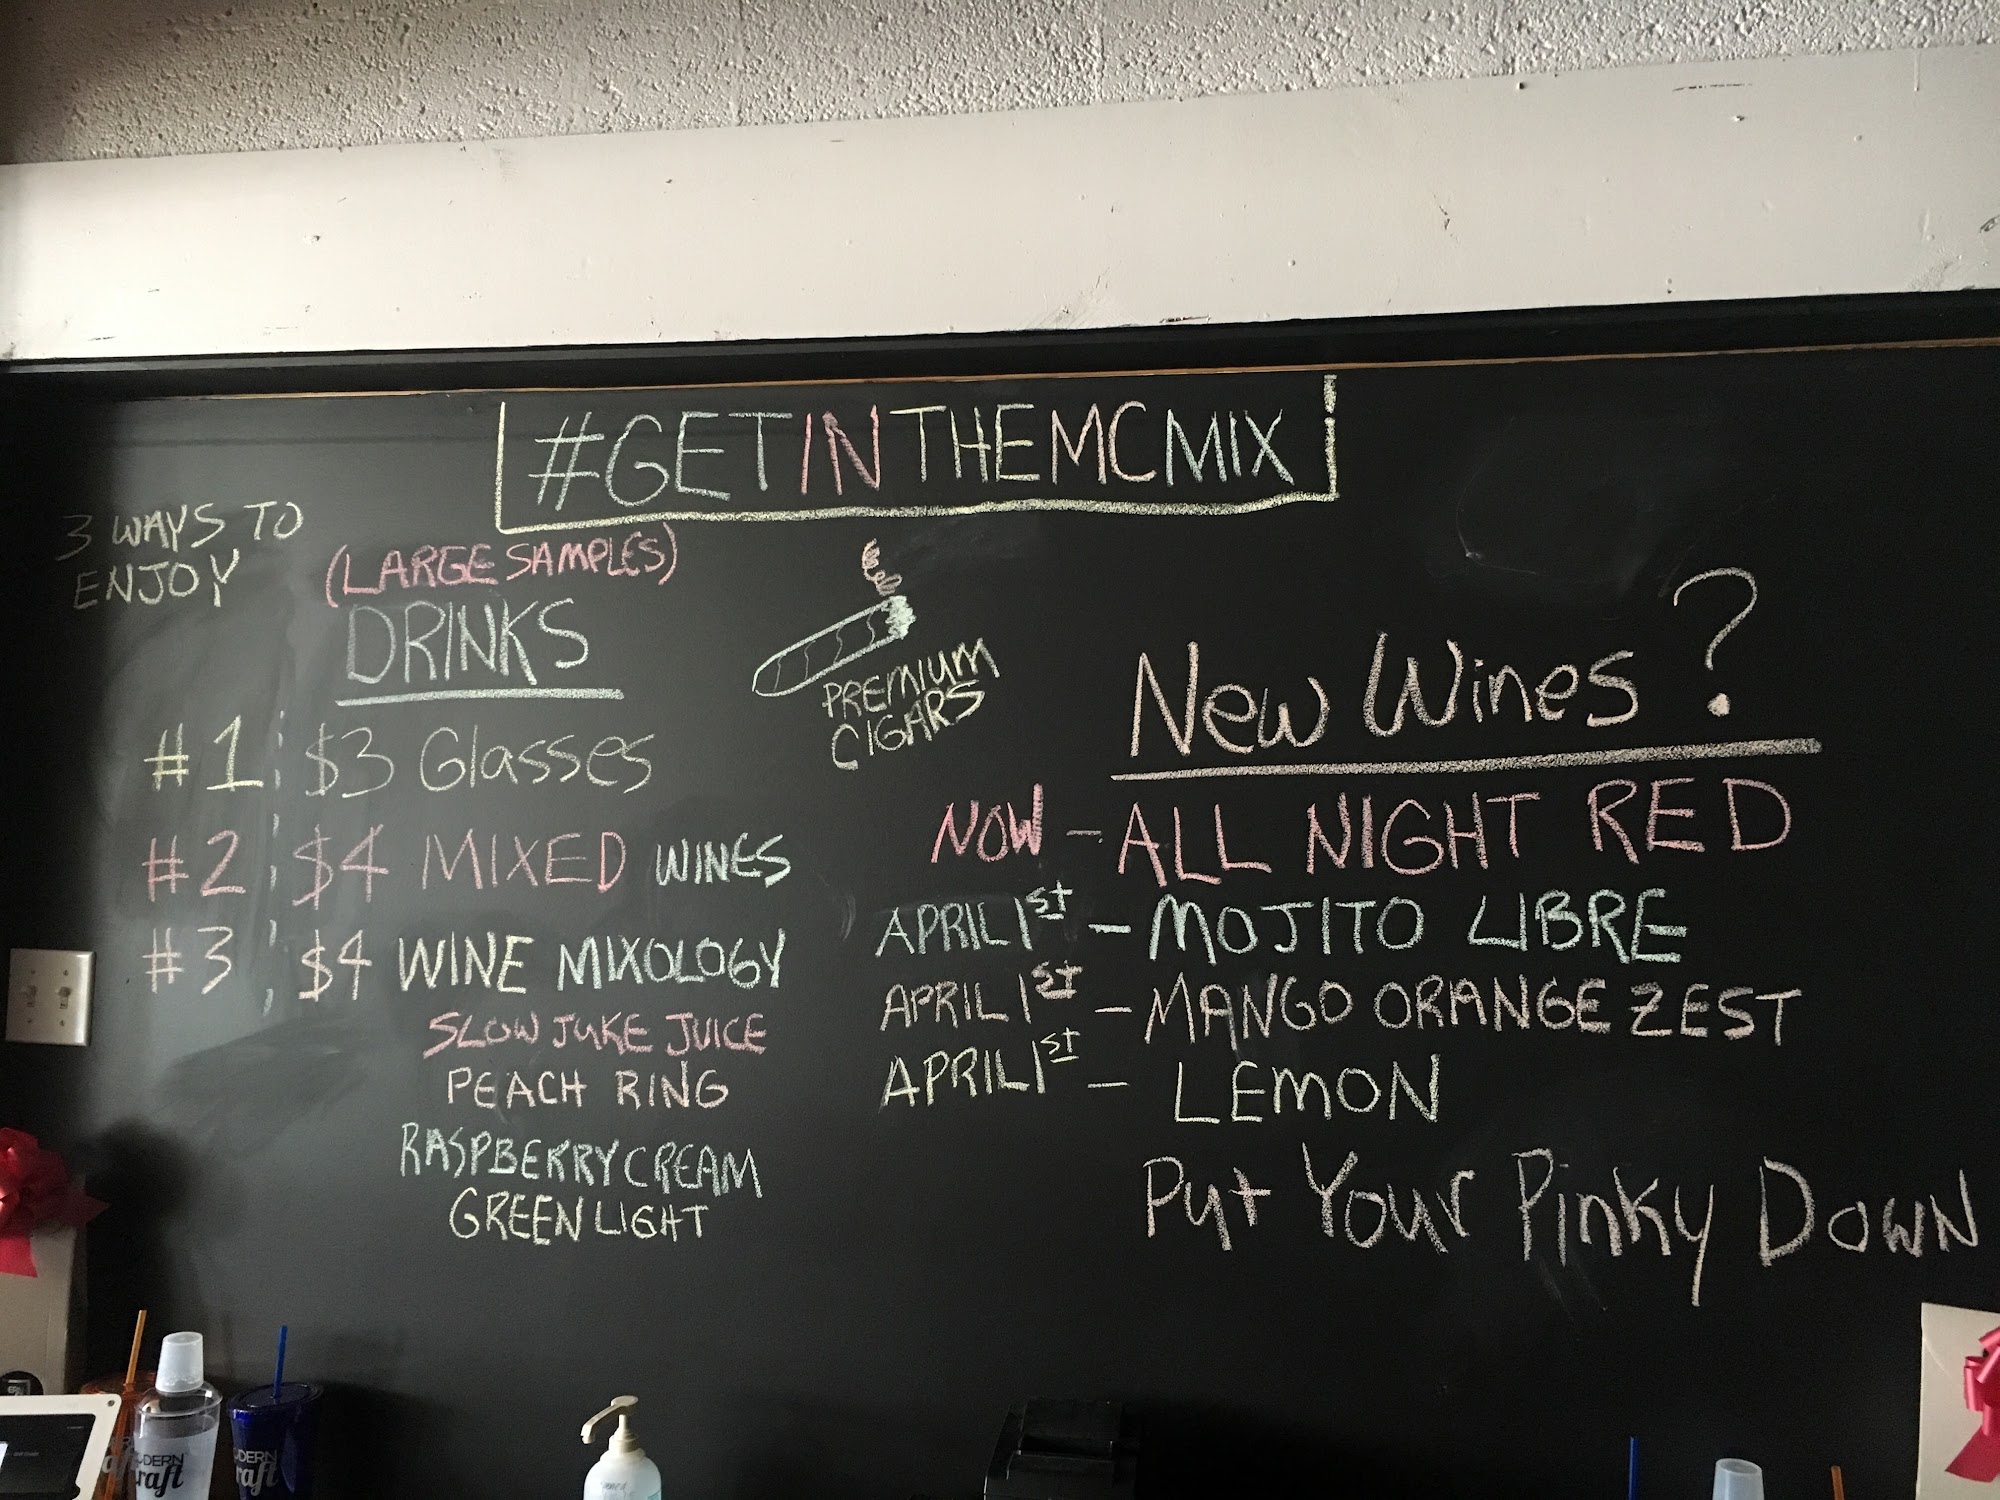 #GETINTHEMCMIX
3 WAYS TO
ENJOY
(LARGE SAMPLES)
DRINKS
#1 $3 Glasses
#2 $4 MIXED WINES
#3 $4 WINE MIXOLOGY
SLOW JUKE JUICE
PEACH RING
RASPBERRY CREAM
GREEN LIGHT
PREMIUM
CIGARS
New Wines?
NOW - ALL NIGHT RED
APRIL 1st - MOJITO LIBRE
APRIL 1st - MANGO ORANGE ZEST
APRIL 1st - LEMON
Put Your Pinky Down